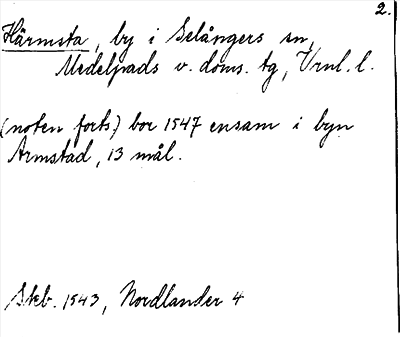 2.
Härmsta, by i Selångers sn,
Medelpads v. doms. tg, Vrnl. l.
(noten forts.) bor 1547 ensam i byn
Armstad, 13 mål.
Skb. 1543, Nordlander 4